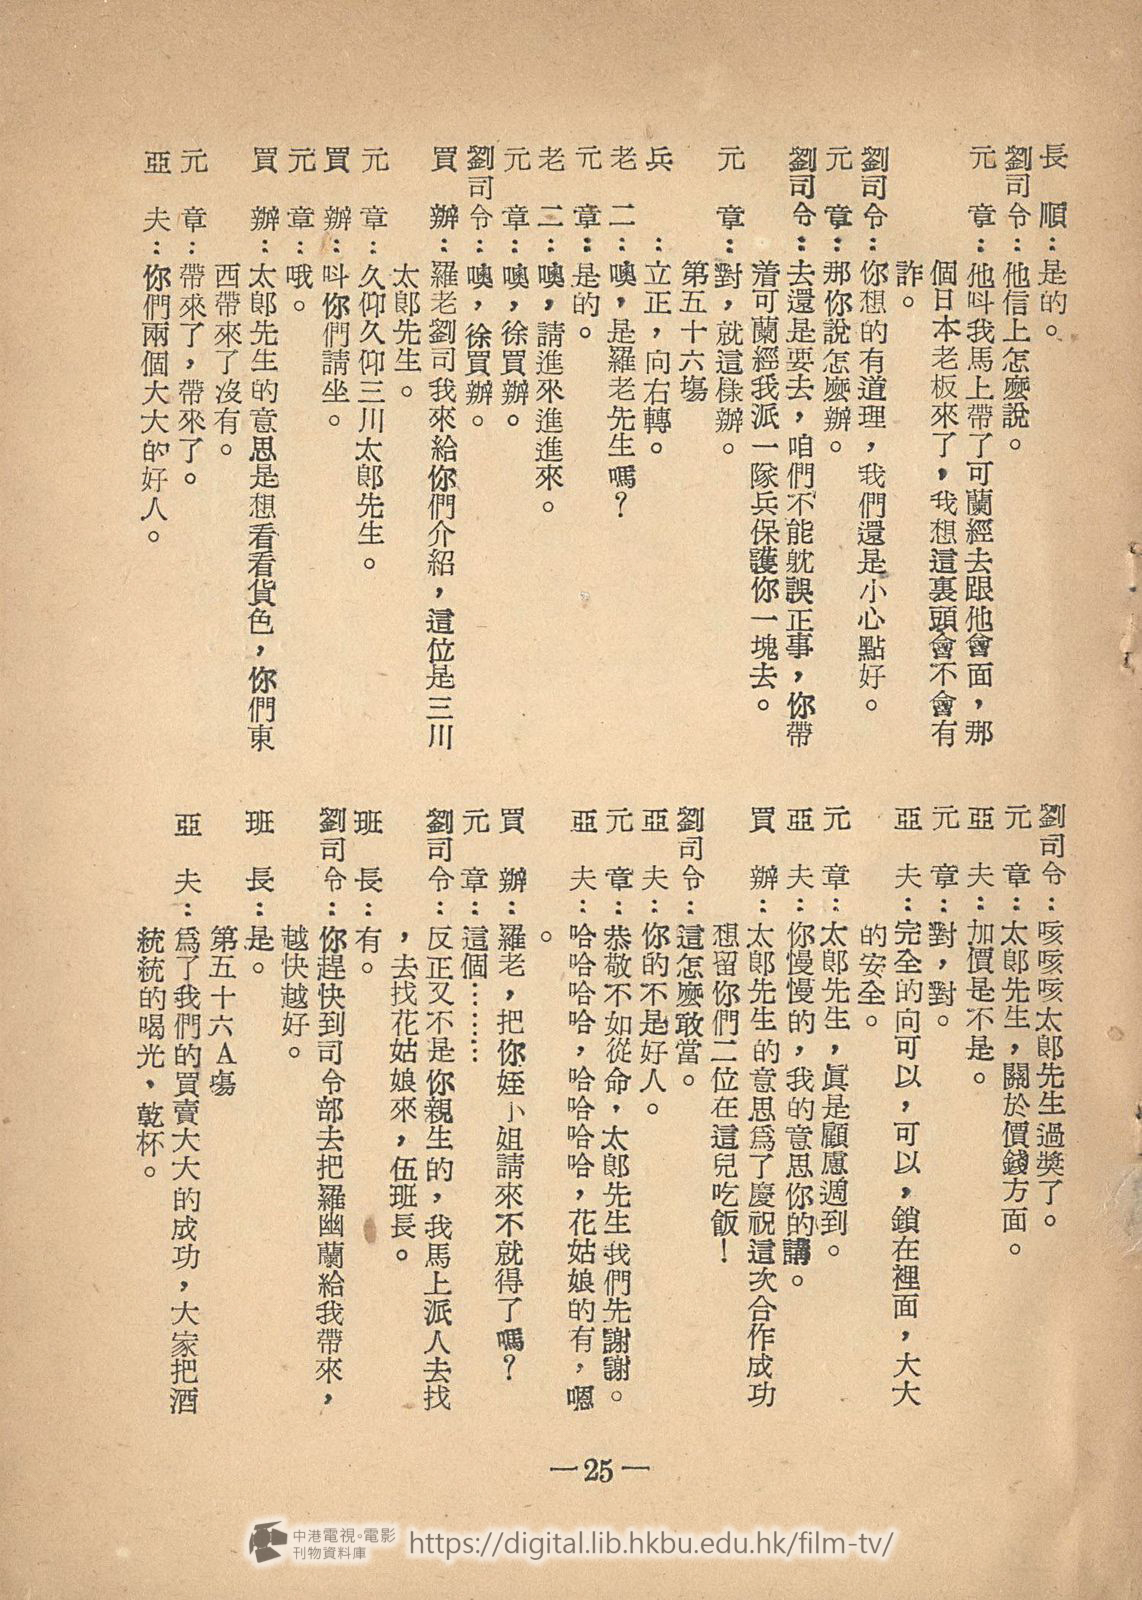 長　順：是的。
劉司令：他信上怎麽說。
元　章：他呌我馬上帶了可蘭經去跟他會面，那
個日本老板來了，我想這裏頭會不會有
詐。
劉司令：你想的有道理，我們還是小心點好。
元　章：那你說怎麽辦。
劉司令：去還是要去，咱們不能躭誤正事，你帶
着可蘭經我派一隊兵保護你一塊去。
元　章：對，就這樣辦。
第五十六塲
兵　　：立正，向右轉。
老　二：噢，是羅老先生嗎？
元　章：是的。
老　二：噢，請進來進進來。
元　章：噢，徐買辦。
劉司令：噢，徐買辦。
買　辦：羅老劉司我來給你們介紹，這位是三川
太郎先生。
元　章：久仰久仰三川太郎先生。
買　辦：呌你們請坐。
元　章：哦。
買　辦：太郎先生的意思是想看看貨色，你們東
西帶來了沒有。
元　章：帶來了，帶來了。
亞　夫：你們兩個大大的好人。
劉司令：咳咳咳太郎先生過獎了。
元　章：太郎先生，關於價錢方面。
亞　夫：加價是不是。
元　章：對，對。
亞　夫：完全的向可以，可以，鎖在裡面，大大
的安全。
元　章：太郎先生，眞是顧慮週到。
亞　夫：你慢慢的，我的意思你的講。
買　辦：太郎先生的意思爲了慶祝這次合作成功
想留你們二位在這兒吃飯！
劉司令：這怎麽敢當。
亞　夫：你的不是好人。
元　章：恭敬不如從命，太郎先生我們先謝謝。
亞　夫：哈哈哈哈，哈哈哈哈，花姑娘的有，嗯
。
買　辦：羅老，把你姪小姐請來不就得了嗎？
元　章：這個………
劉司令：反正又不是你親生的，我馬上派人去找
，去找花姑娘來，伍班長。
班　長：有。
劉司令：你趕快到司令部去把羅幽蘭給我帶來，
越快越好。
班　長：是。
第五十六A塲
亞　夫：爲了我們的買賣大大的成功，大家把酒
統統的喝光，乾杯。
—25—
中港電視。電影
刊物資料庫
https://digital.lib.hkbu.edu.hk/film-tv/